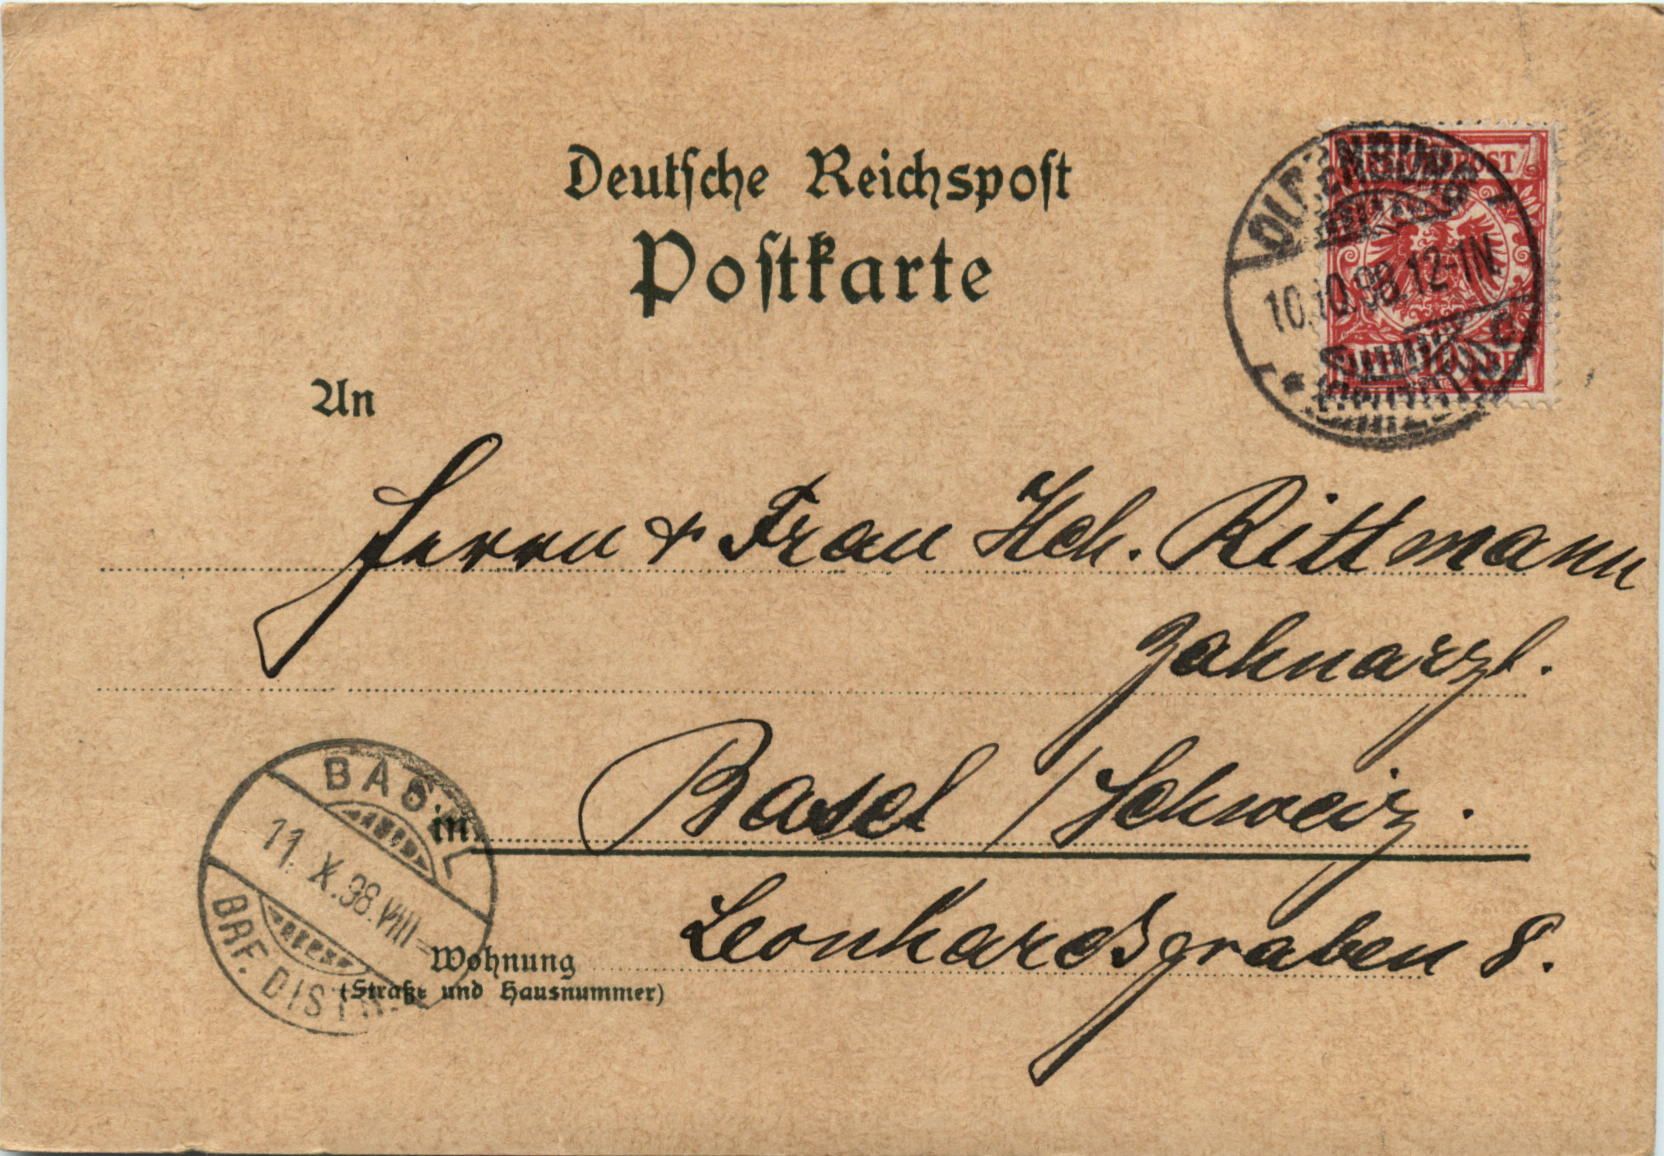 Deutsche Reichspost
Postkarte
REICHSPOST
OLDENBURG
10.10.98.12-1N.
An
Herrn & Frau Hch. Rittmann
Zahnarzt.
BASEL
11.X.98.VIII-
BRF. DISTR.
in Basel / Schweiz.
Wohnung Leonhardsgraben 8.
(Straße und Hausnummer)